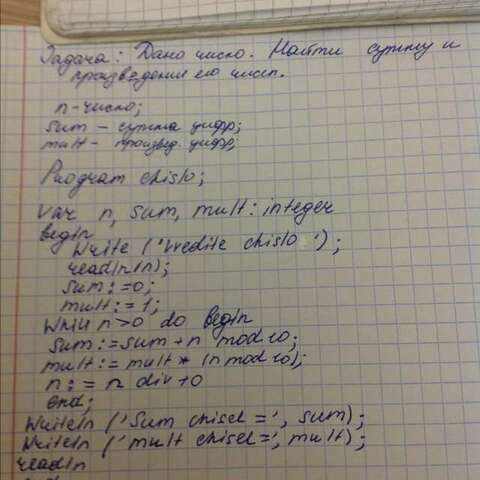 Задача: Дано число. Найти сумму и
произведения его чисел.
n - число;
sum - сумма цифр;
mult - произвед. цифр;
Program chislo;
Var n, sum, mult: integer
begin
Write ('Vvedite chislo');
readln(n);
sum:=0;
mult:=1;
While n>0 do begin
sum:=sum+n mod 10;
mult:=mult*(n mod 10);
n:=n div 10
end;
Writeln ('Sum chisel=', sum);
Writeln ('mult chisel=', mult);
readln